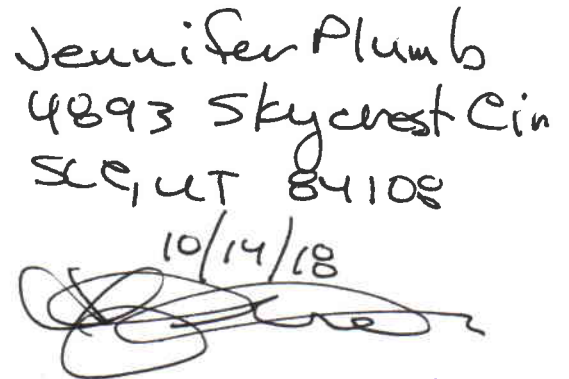 Jennifer Plumb
4893 Skycrest Cir
SLC, UT 84108
10/14/18